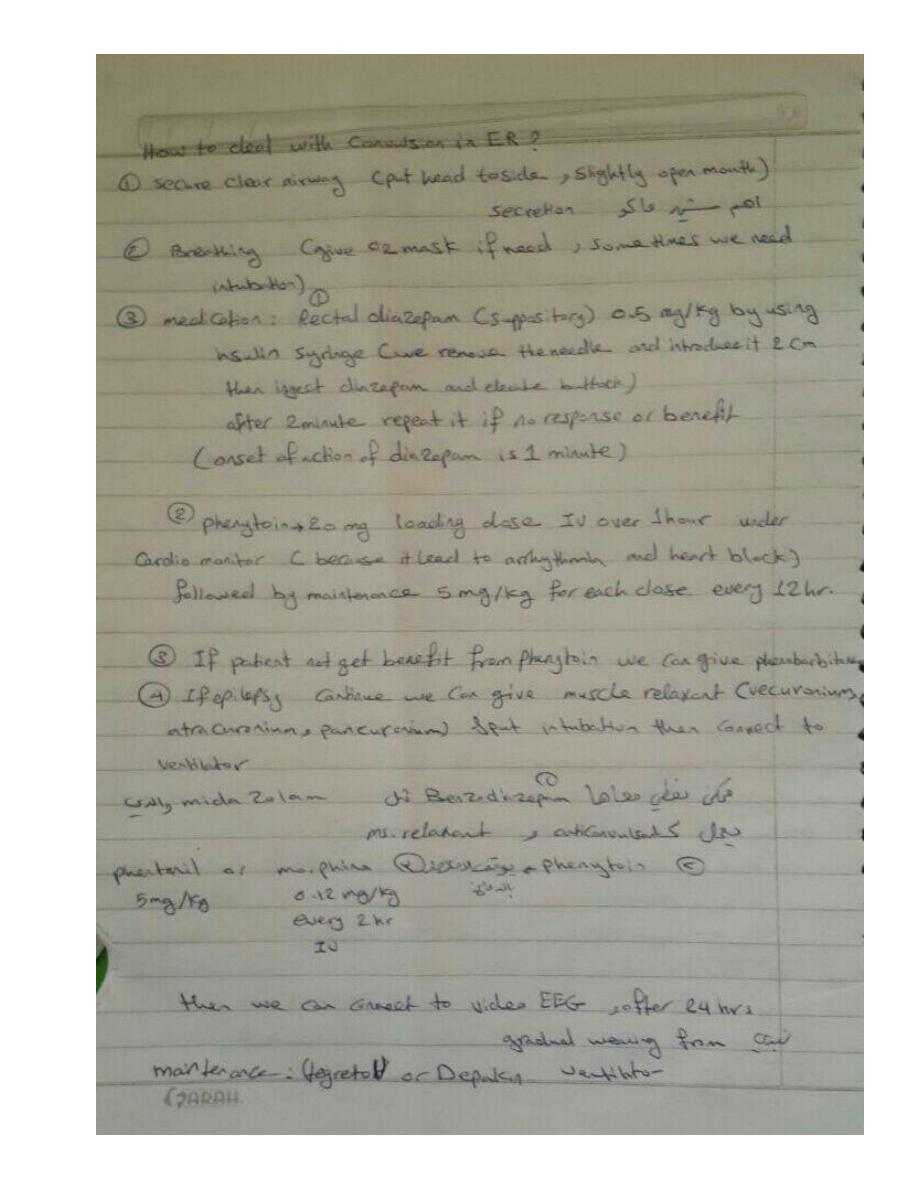 How to deal with Convulsion in ER?
① secure clear airway (put head to side, slightly open mouth)
secretion اهم شي ماكو
② Breathing (give O2 mask if need, sometimes we need
intubation)
③ medication: ① Rectal diazepam (suppository) 0.5 mg/kg by using
insulin syringe (we remove the needle and introduce it 2 cm
then ingect diazepam and elevate buttock)
after 2 minute repeat it if no response or benefit
(onset of action of diazepam is 1 minute)
② phenytoin → 20 mg loading dose IV over 1 hour under
Cardio monitor (because it lead to arrhythmia and heart block)
followed by maintenance 5 mg/kg for each dose every 12 hr.
③ If patient not get benefit from phenytoin we can give phenobarbitone
④ If epilepsy continue we can give muscle relaxant (vecuronium,
atracuronium, pancuronium) & put intubation then connect to
ventilator
ممكن نعطي معاها ① Benzodiazepam مثل midazolam والذي
يعمل ك anticonvulsant و ms. relaxant
② phenytoin ② morphine or phentanil
0.12 mg/kg 5mg/kg
every 2 hr
IV
then we can connect to video EEG, after 24 hrs
gradual wening from
maintenance: (tegretol or Depakin ventilator
SARAH